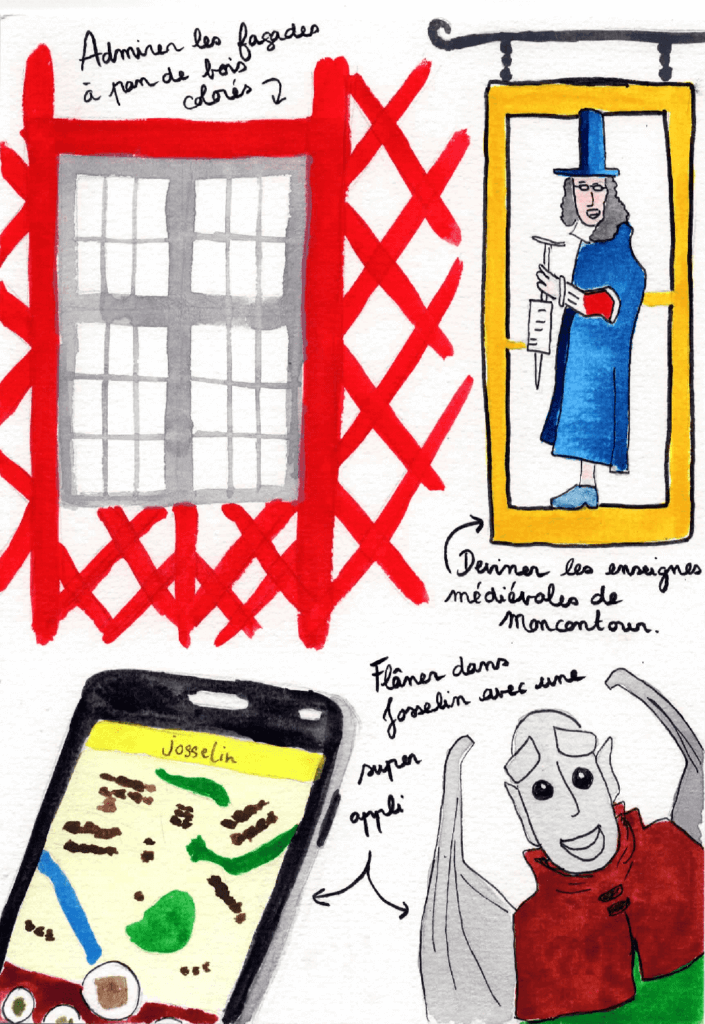 Admirer les façades
à pan de bois
colorés
Deviner les enseignes
médiévales de
Moncontour.
Flâner dans
Josselin avec une
super
appli
josselin